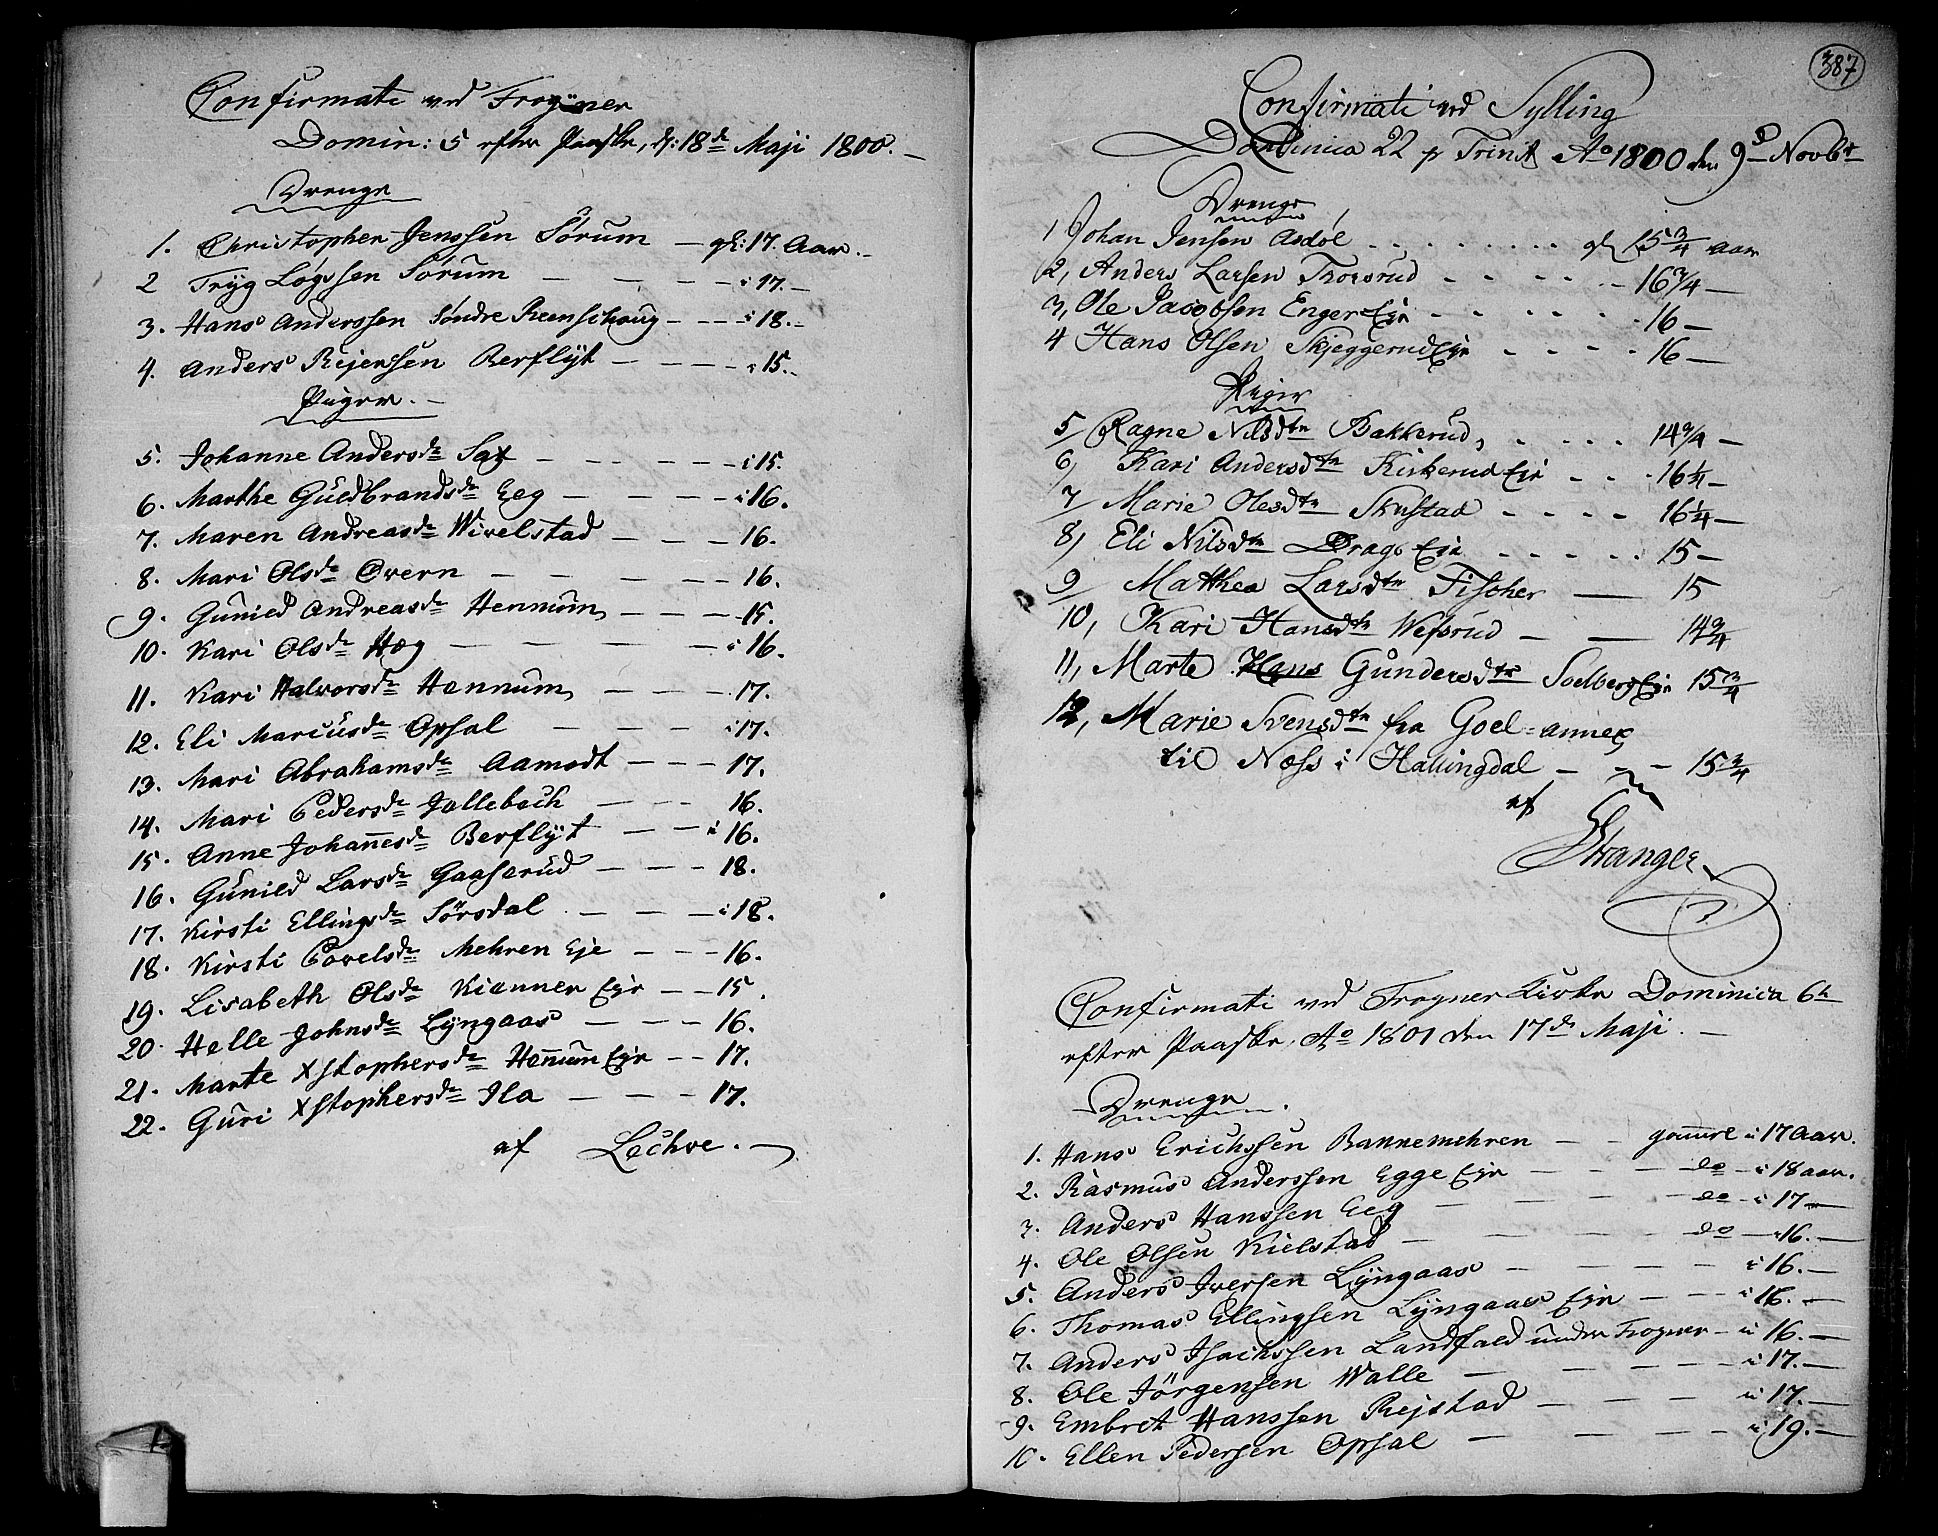 Confirmati ved Frogner
Domin: 5 efter Paaske, d: 18de Maji 1800. —
Drenge
1. Christopher Jenssen Sörum — gl: 17. Aar. —
2 Tryg Löyssen Sörum — — — i 17. —
3. Hans Anderssen Söndre Reenschoug — — — i 18. —
4. Anders Rejerssen Berflÿt — — — i 15. —
Piger. —
5. Johanne Andersdr Sax — — — i 15.
6. Marthe Guldbrandsdr Eeg — — — i 16.
7. Maren Andreasdr Wivelstad — — — 16.
8. Mari Olsdr Overn — — — 16.
9. Gunild Andreasdr Hennum — — — 15.
10. Kari Olsdr Hæg — — — i 16.
11. Kari Halvorsdr Hennum — — — 17.
12. Eli Marcusdr Opsal — — — i 17.
13. Mari Abrahamsdr Aamodt — — — 17.
14. Mari Pedersdr Jallebech — — — 16.
15. Anne Johannesdr Berflÿt — — i 16.
16. Gunild Larsdr Gaaserud — — — 18.
17. Kirsti Ellingsdr Sörsdal — — — i 18.
18. Kirsti Povelsdr Mehren Eje — — — 16.
19. Lisabeth Olsdr Kienner Eje — — 15.
20. Helle Johnsdr Lÿngaas — — — 16.
21. Marte Xstophersdr Hennum Eje — — 17.
22. Guri Xstophersdr Ila — — — 17.
af Lechve. —
387
Confirmati ved Sylling
Dominica 22 p Trinit Ao 1800 den 9de Novbr
Drenge
1 Johan Jensen Asdöl . . . . gl 15 3/4 aar
2, Anders Larsen Thorsrud - - - - 16 3/4 —
3, Ole Jacobsen Enger Eje - - - - 16 —
4 Hans Olsen Skjeggerud Eje - - - - 16 —
Piger
5/ Ragne Nilsdtr Bakkerud, . . . . 14 3/4 —
6, Kari Andersdtr Kirkerud Eje - - - 16 1/4 —
7/ Marie Olesdtr Skustad - - - - 16 1/4 —
8, Eli Nilsdtr Drags Eje - - - - 15 —
9/ Matthea Larsdtr Fischer — 15
10, Kari Hansdtr Wefsrud — — 14 3/4
11, Marte Hans Gundersdtr Solberg Eje 15 3/4
12, Marie Svensdtr fra Goel = annex
til Næss i Hallingdal — — — 15 3/4
af
Stranger
Confirmati ved Frogner Kirke Dominica 6te
efter Paaske, Ao 1801 den 17de Maji. —
Drenge.
1. Hans Erichssen Bannemehren — — gammel i 17 Aar.
2. Rasmus Anderssen Egge Eje — — — do — i 18 aar.
3. Anders Hanssen Eeg — — — do — i 17 —
4. Ole Olsen Kielstad — — — do — i 16. —
5. Anders Iversen Lÿngaas — — — i 16. —
6. Thomas Ellingsen Lÿngaas Eje — — i 16. —
7. Anders Isachssen Landfald under Frogner — i 16. —
8. Ole Jörgensen Walle — — — i 17. —
9. Embret Hanssen Rejstad — — — i 17. —
10. Ellen Pedersen Opsal — — — i 19. —